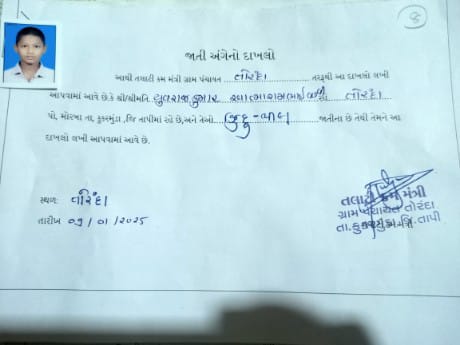 8
જાતી અંગેનો દાખલો
આથી તલાટી કમ મંત્રી ગ્રામ પંચાયત તોરંદા તરફથી આ દાખલો લખી
આપવામાં આવે છે.કે શ્રી/શ્રીમતિ યુવરાજકુમાર આત્મારામભાઈ વળવી તોરંદા
પો, મોરંબા તા, કુકરમુંડા ,જિ તાપીમાં રહે છે,અને તેઓ હિન્દુ - જાતીના છે તેથી તેમને આ
દાખલો લખી આપવામાં આવે છે.
સ્થળ: તોરંદા
તારીખ 09/01/2025
તલાટી કમ મંત્રી
ગ્રામપંચાયત તોરંદા
તા.કુકરમુંડા જિ.તાપી